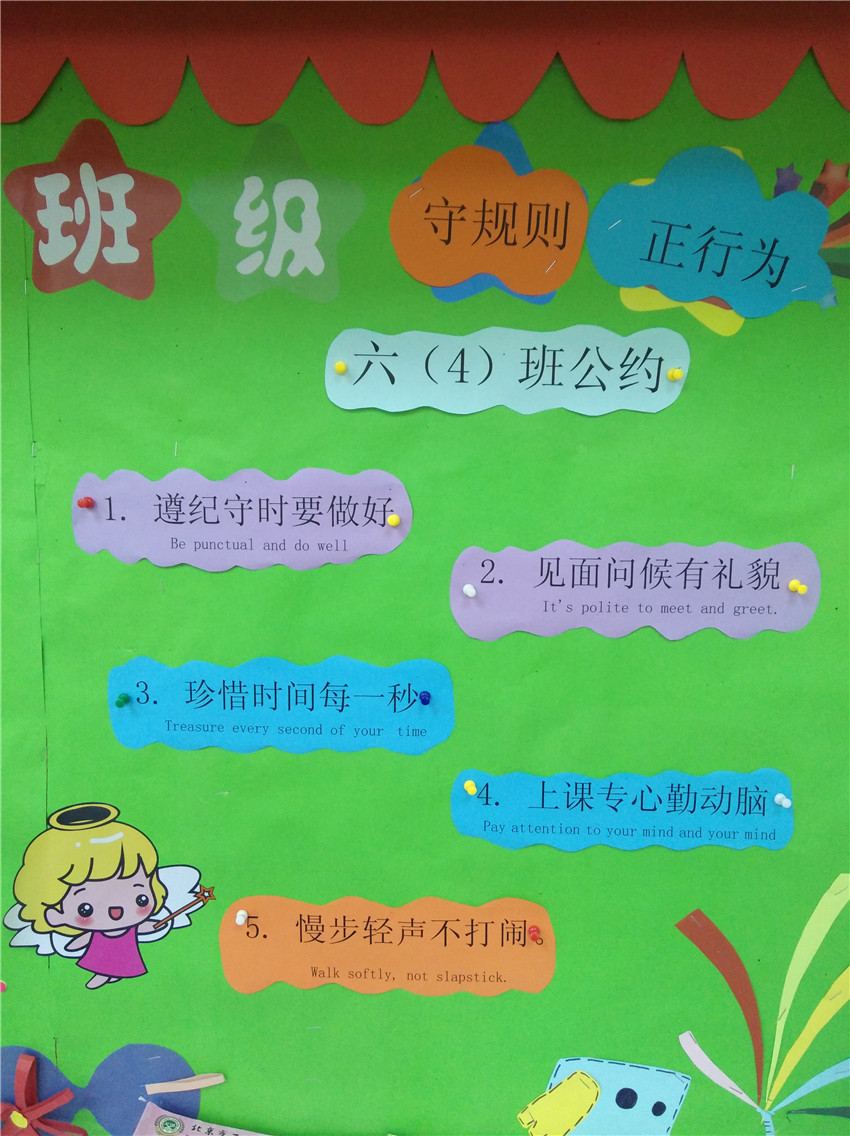 班级
守规则
正行为
六（4）班公约
1. 遵纪守时要做好
Be punctual and do well
2. 见面问候有礼貌
It's polite to meet and greet.
3. 珍惜时间每一秒
Treasure every second of your time
4. 上课专心勤动脑
Pay attention to your mind and your mind
5. 慢步轻声不打闹。
Walk softly, not slapstick.
北京市